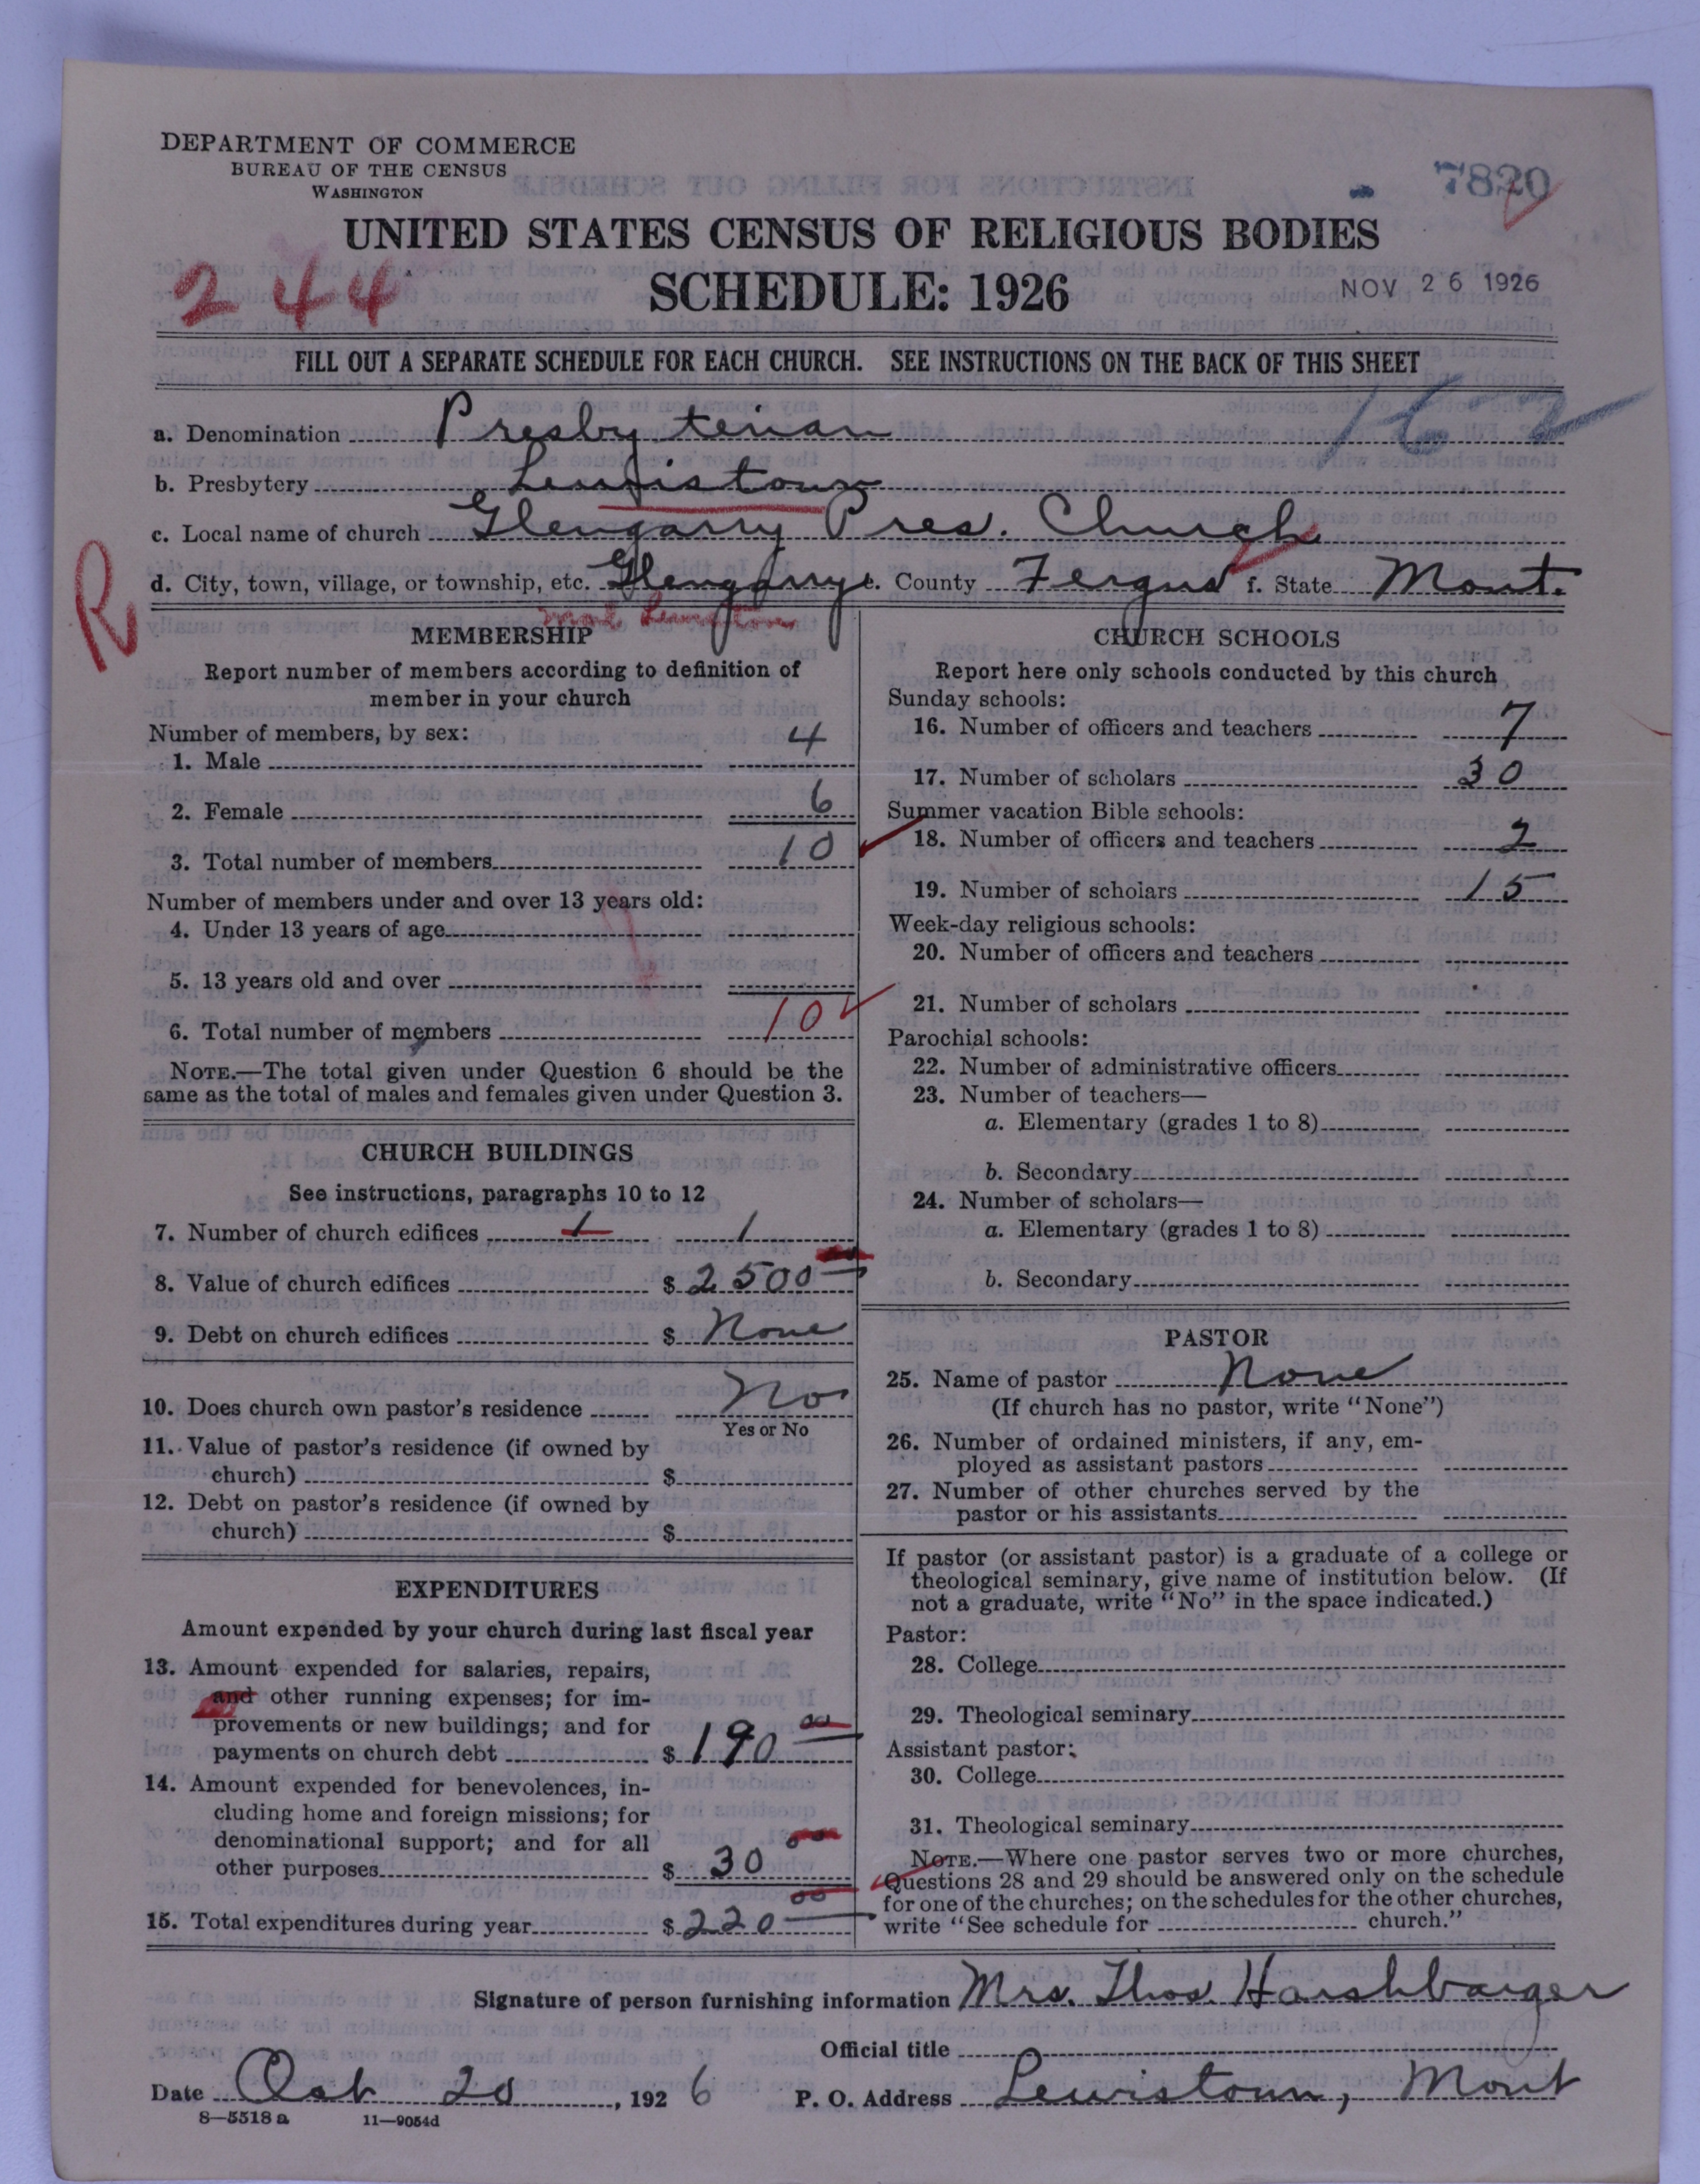 DEPARTMENT OF COMMERCE
BUREAU OF THE CENSUS
WASHINGTON
7820
UNITED STATES CENSUS OF RELIGIOUS BODIES
SCHEDULE: 1926
244
NOV 26 1926
FILL OUT A SEPARATE SCHEDULE FOR EACH CHURCH. SEE INSTRUCTIONS ON THE BACK OF THIS SHEET
a. Denomination Presbyterian
b. Presbytery Lewistown
c. Local name of church Glengarry Pres. Church
d. City, town, village, or township, etc. Glengarry e. County Fergus f. State Mont.
R
MEMBERSHIP
Report number of members according to definition of
member in your church
Number of members, by sex:
1. Male 4
2. Female 6
3. Total number of members 10
Number of members under and over 13 years old:
4. Under 13 years of age
5. 13 years old and over
6. Total number of members 10
NOTE.—The total given under Question 6 should be the
same as the total of males and females given under Question 3.
CHURCH BUILDINGS
See instructions, paragraphs 10 to 12
7. Number of church edifices 1 1
8. Value of church edifices $ 2500
9. Debt on church edifices $ None
10. Does church own pastor's residence No
Yes or No
11. Value of pastor's residence (if owned by
church) $
12. Debt on pastor's residence (if owned by
church) $
EXPENDITURES
Amount expended by your church during last fiscal year
13. Amount expended for salaries, repairs,
and other running expenses; for im-
provements or new buildings; and for
payments on church debt $ 190 00
14. Amount expended for benevolences, in-
cluding home and foreign missions; for
denominational support; and for all
other purposes $ 30 00
15. Total expenditures during year $ 220 00
CHURCH SCHOOLS
Report here only schools conducted by this church
Sunday schools:
16. Number of officers and teachers 7
17. Number of scholars 30
Summer vacation Bible schools:
18. Number of officers and teachers 2
19. Number of scholars 15
Week-day religious schools:
20. Number of officers and teachers
21. Number of scholars
Parochial schools:
22. Number of administrative officers
23. Number of teachers—
a. Elementary (grades 1 to 8)
b. Secondary
24. Number of scholars—
a. Elementary (grades 1 to 8)
b. Secondary
PASTOR
25. Name of pastor None
(If church has no pastor, write "None")
26. Number of ordained ministers, if any, em-
ployed as assistant pastors
27. Number of other churches served by the
pastor or his assistants
If pastor (or assistant pastor) is a graduate of a college or
theological seminary, give name of institution below. (If
not a graduate, write "No" in the space indicated.)
Pastor:
28. College
29. Theological seminary
Assistant pastor:
30. College
31. Theological seminary
NOTE.—Where one pastor serves two or more churches,
Questions 28 and 29 should be answered only on the schedule
for one of the churches; on the schedules for the other churches,
write "See schedule for church."
Signature of person furnishing information Mrs. Thos. Harshbarger
Official title
Date Oct 20, 1926 P. O. Address Lewistown, Mont
8—5518 a 11—9054d